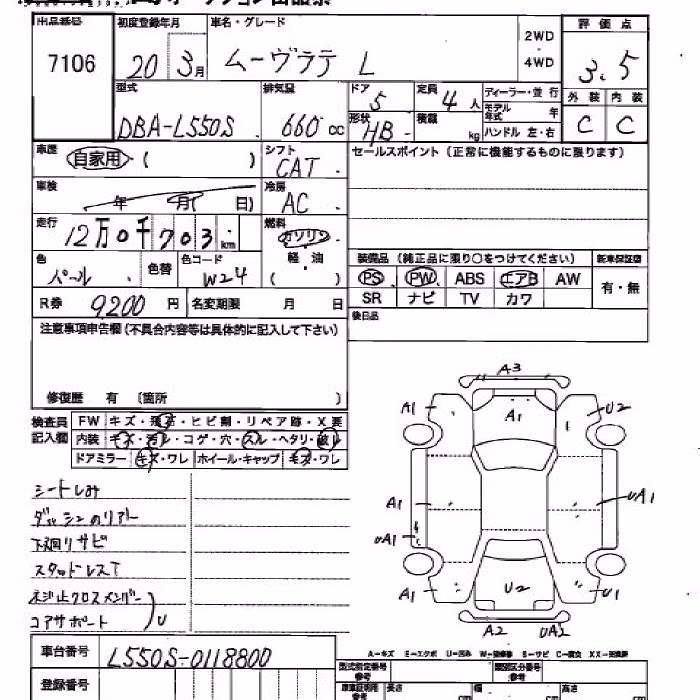 出品番号 初度登録年月 車名・グレード 評価点
7106 20 3月 ムーヴラテ L 2WD・4WD 3.5
型式 排気量 ドア 5 定員 4人 ディーラー・並行 外装 内装
DBA-L550S 660cc 形状 HB 積載 kg モデル年式 年 C C
ハンドル 左・右
車歴 自家用 ( ) シフト CAT セールスポイント(正常に機能するものに限ります)
車検 年 月( 日) 冷房 AC
走行 12万0千703km 燃料 ガソリン
軽・油
( )
色 パール 色替 色コード W24
装備品 (純正品に限り○をつけてください) 新車保証書
PS PW ABS エアB AW 有・無
SR ナビ TV カワ
R券 9200円 名変期限 月 日
後日品
注意事項申告欄(不具合内容等は具体的に記入して下さい)
修復歴 有 〔箇所 〕
検査員記入欄 FW キズ・飛石・ヒビ割・リペア跡・X要
内装 キズ・汚レ・コゲ・穴・スレ・ヘタリ・破レ
ドアミラー キズ・ワレ ホイール・キャップ キズ・ワレ
シートしみ
ダッシュのリアト
下廻りサビ
スタッドレスT
ネジ止クロスメンバー
コアサポート U
A3
A1 A1 U2
A1 UA1
UA1
A1 U2 U1
A2 UA2
車台番号 L550S-0118800
A-キズ E-エクボ U-凹み W-補修跡 S-サビ C-腐食 XX-交換済
型式指定番号 類別区分番号
登録番号
長さ cm 幅 cm 高さ cm